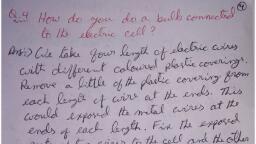 Q.4 How do you do a bulb connected
to the electric cell?
Ans:) We take four length of electric wires
with different coloured plastic coverings.
Remove a little of the plastic covering from
each length of wire at the ends. This
would exposed the metal wires at the
ends of each length. Fix the exposed
wires to the cell and the other